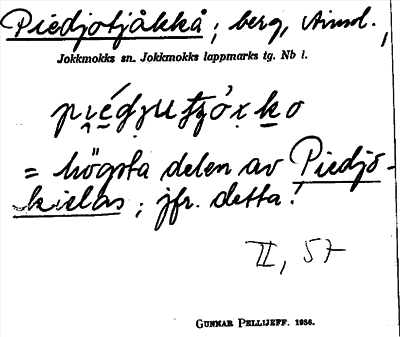 Piedjotjåkkå; berg, Aimd.,
Jokkmokks sn. Jokkmokks lappmarks tg. Nb l.
= högsta delen av Piedjo-
kielas; jfr. detta!
II, 57
GUNNAR PELLIJEFF. 1956.